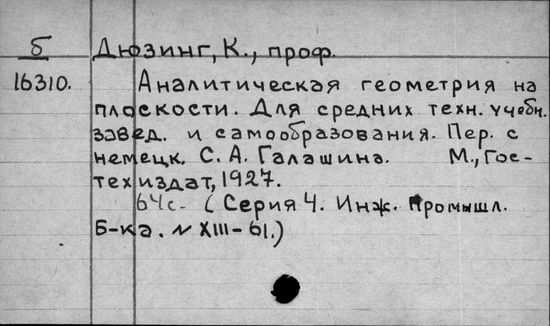 б Дюзинг, К., проф.
16310. Аналитическая геометрия на
плоскости. Для средних техн. учебн.
завед. и самообразования. Пер. с
немецк. С. А. Галашина. М., Гос-
техиздат, 1927.
64с. (Серия 4. Инж. Промышл.
Б-ка. № XIII-61.)